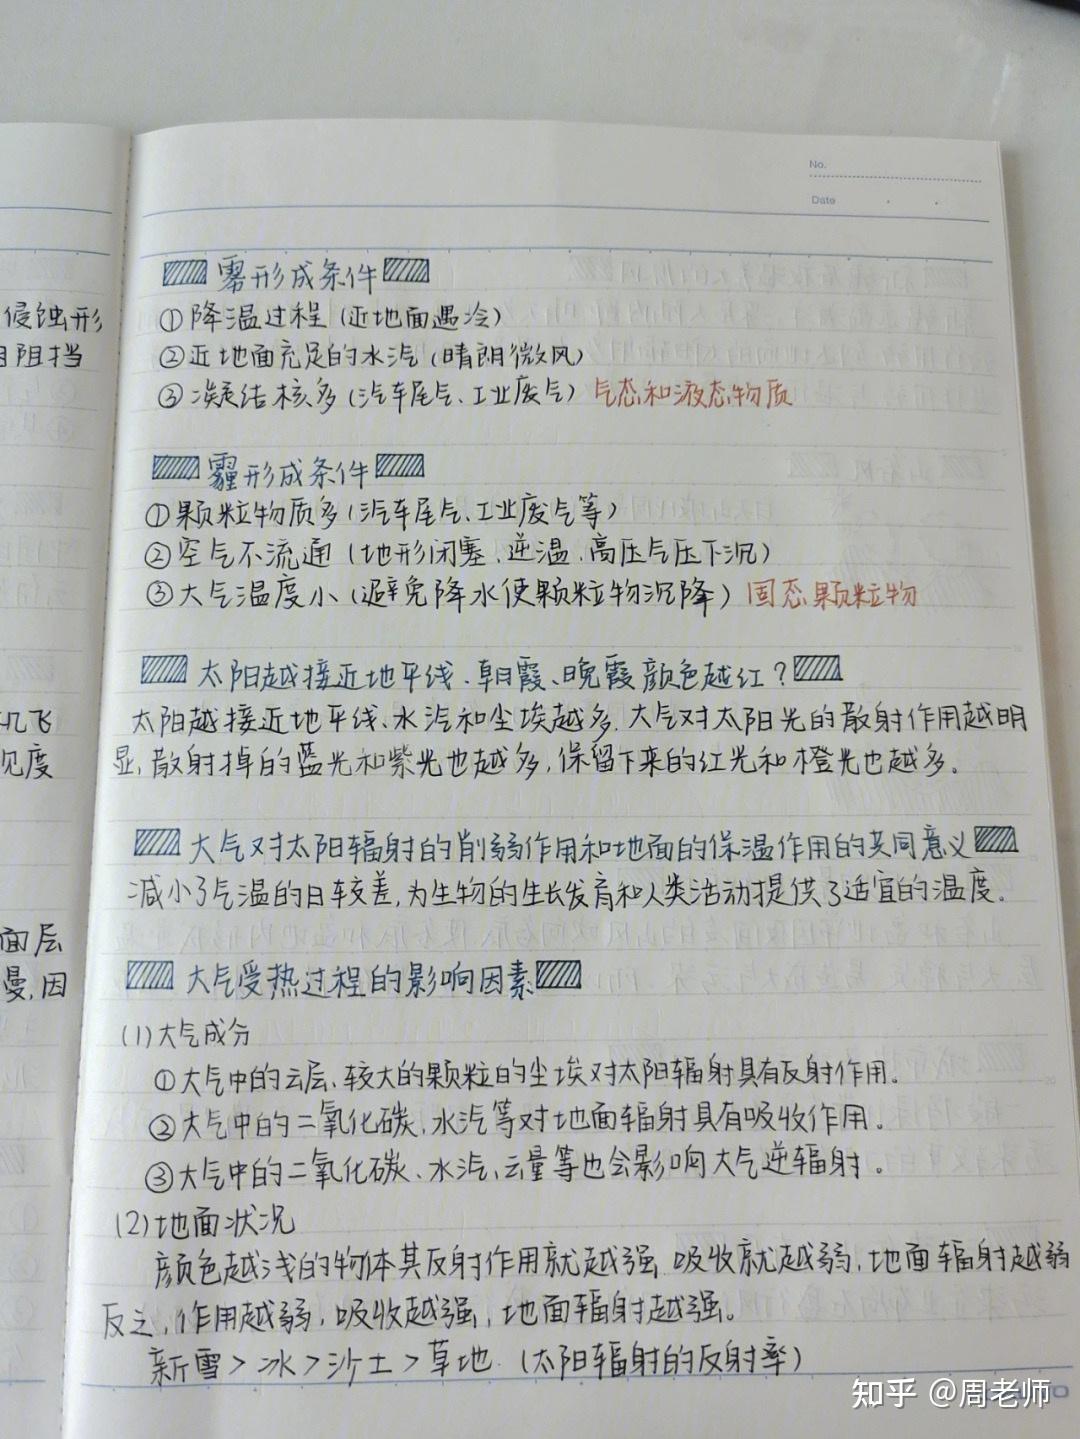 No.
Date
侵蚀形
阻挡
机飞
见度
面层
曼,因
雾形成条件
①降温过程(近地面遇冷)
②近地面充足的水汽(晴朗微风)
③凝结核多(汽车尾气、工业废气) 气态和液态物质
霾形成条件
①颗粒物质多(汽车尾气、工业废气等)
②空气不流通(地形闭塞、逆温、高压气压下沉)
③大气温度小(避免降水使颗粒物沉降) 固态颗粒物
太阳越接近地平线、朝霞、晚霞颜色越红?
太阳越接近地平线、水汽和尘埃越多.大气对太阳光的散射作用越明
显,散射掉的蓝光和紫光也越多,保留下来的红光和橙光也越多。
大气对太阳辐射的削弱作用和地面的保温作用的共同意义
减小了气温的日较差,为生物的生长发育和人类活动提供了适宜的温度。
大气受热过程的影响因素
(1)大气成分
①大气中的云层、较大的颗粒的尘埃对太阳辐射具有反射作用。
②大气中的二氧化碳,水汽等对地面辐射具有吸收作用。
③大气中的二氧化碳、水汽、云量等也会影响大气逆辐射。
(2)地面状况
颜色越浅的物体其反射作用就越强 吸收就越弱,地面辐射越弱
反之,作用越弱,吸收越强,地面辐射越强。
新雪>冰>沙土>草地.(太阳辐射的反射率)
知乎 @周老师